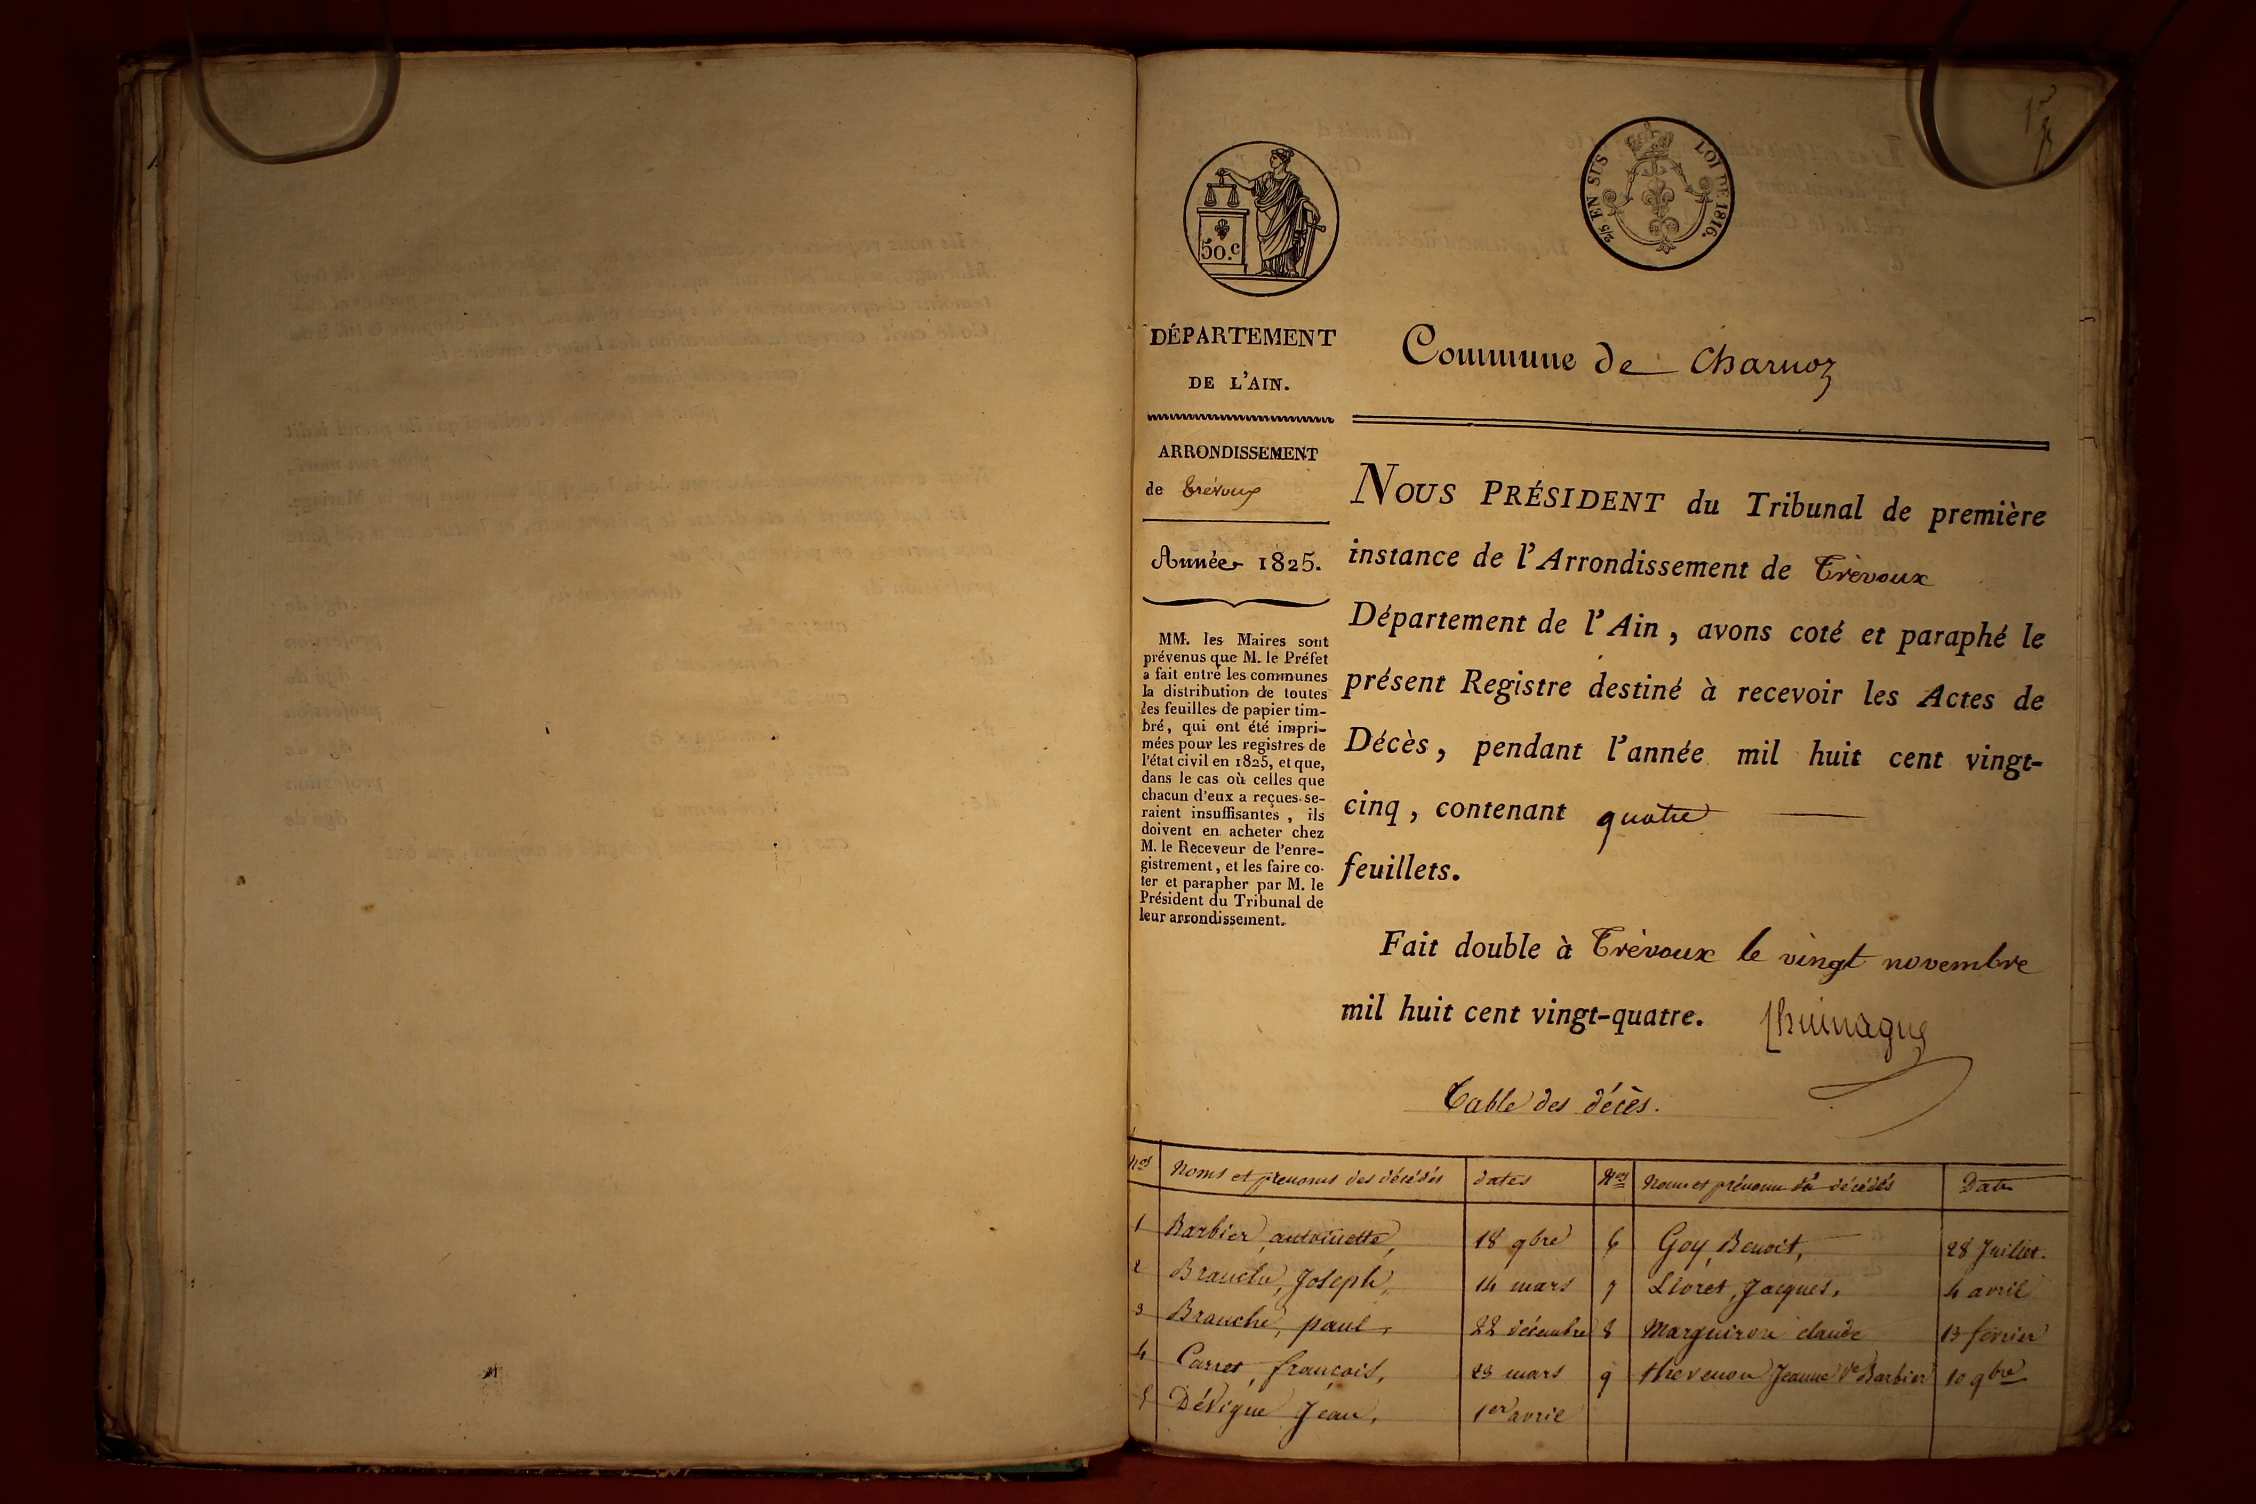 50.c
2/5 EN SUS LOI DE 1816.
DÉPARTEMENT
DE L'AIN.
ARRONDISSEMENT
de trévoux
Année 1825.
MM. les Maires sont
prévenus que M. le Préfet
a fait entre les communes
la distribution de toutes
les feuilles de papier tim-
bré, qui ont été impri-
mées pour les registres de
l'état civil en 1825, et que,
dans le cas où celles que
chacun d'eux a reçues se-
raient insuffisantes, ils
doivent en acheter chez
M. le Receveur de l'enre-
gistrement, et les faire co-
ter et parapher par M. le
Président du Tribunal de
leur arrondissement.
Commune de Charnoz
NOUS PRÉSIDENT du Tribunal de première
instance de l'Arrondissement de Trévoux
Département de l'Ain, avons coté et paraphé le
présent Registre destiné à recevoir les Actes de
Décès, pendant l'année mil huit cent vingt-
cinq, contenant quatre
feuillets.
Fait double à Trévoux le vingt novembre
mil huit cent vingt-quatre.
Table des décès.
Nos Noms et prenoms des décédés dates Nos Noms et prénoms des décédés Date
1 Barbier, antoinette, 18 9bre 6 Goy, Benoit, 28 Juillet.
2 Branche, Joseph, 14 mars 7 Lloret, Jacques, 4 avril
3 Branche, paul, 22 décembre 8 Marguiron claude 13 février
4 Carret, françois, 23 mars 9 thevenon Jeanne Ve Barbier 10 9bre
5 Dévigne Jean, 1er avril